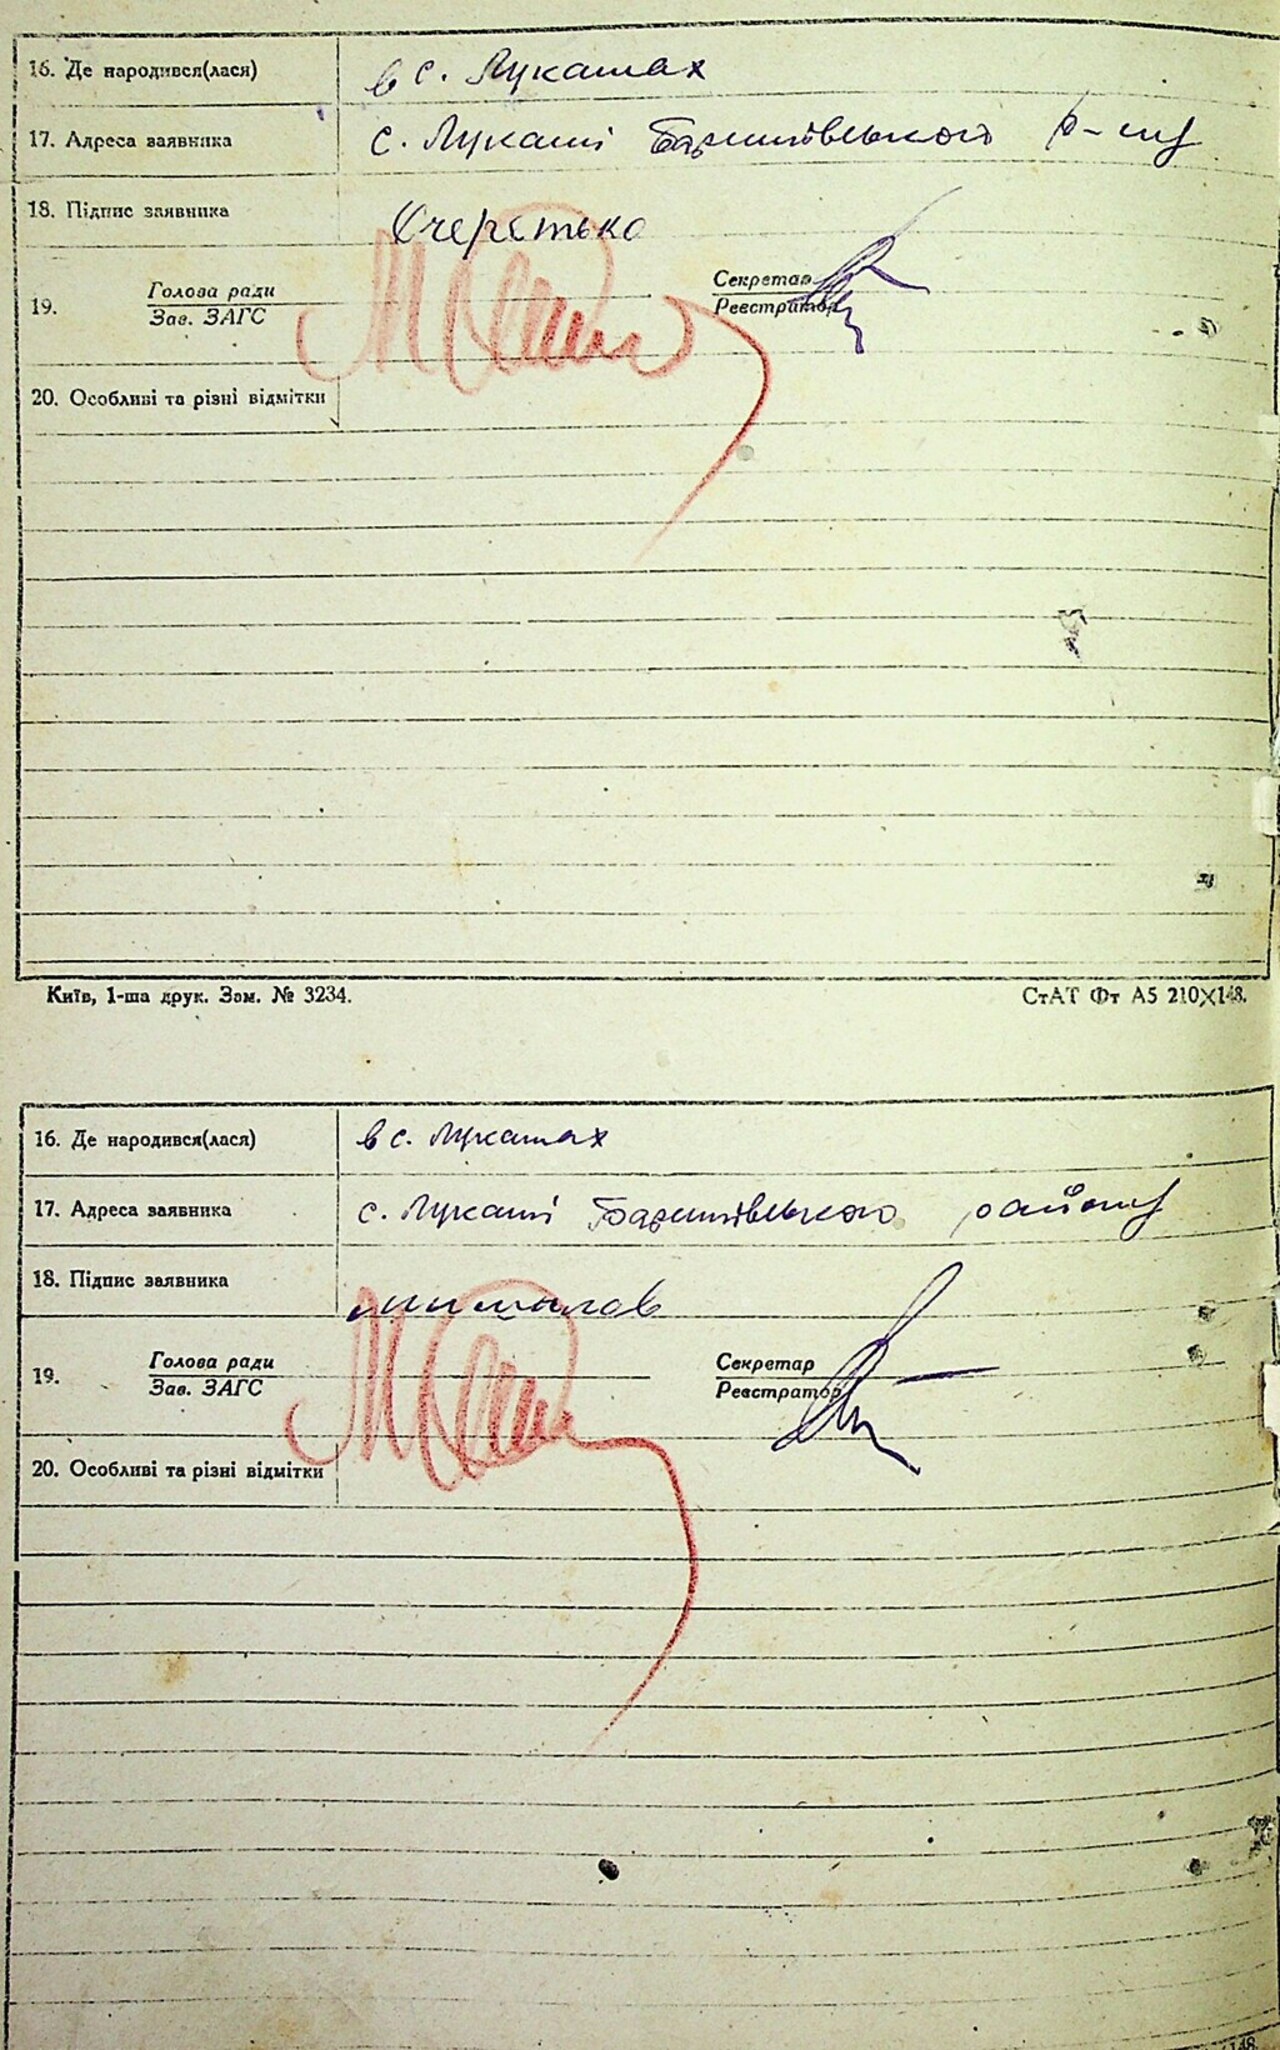 16. Де народився(лася) в с. Лукашах
17. Адреса заявника с. Лукаші Баришівського р-ну
18. Підпис заявника Очеретько
19. Голова ради Секретар
Зав. ЗАГС Реєстратор
20. Особливі та різні відмітки
Київ, 1-ша друк. Зам. № 3234. СтАТ Фт А5 210×148.
16. Де народився(лася) в с. Лукашах
17. Адреса заявника с. Лукаші Баришівського району
18. Підпис заявника
19. Голова ради Секретар
Зав. ЗАГС Реєстратор
20. Особливі та різні відмітки
148.